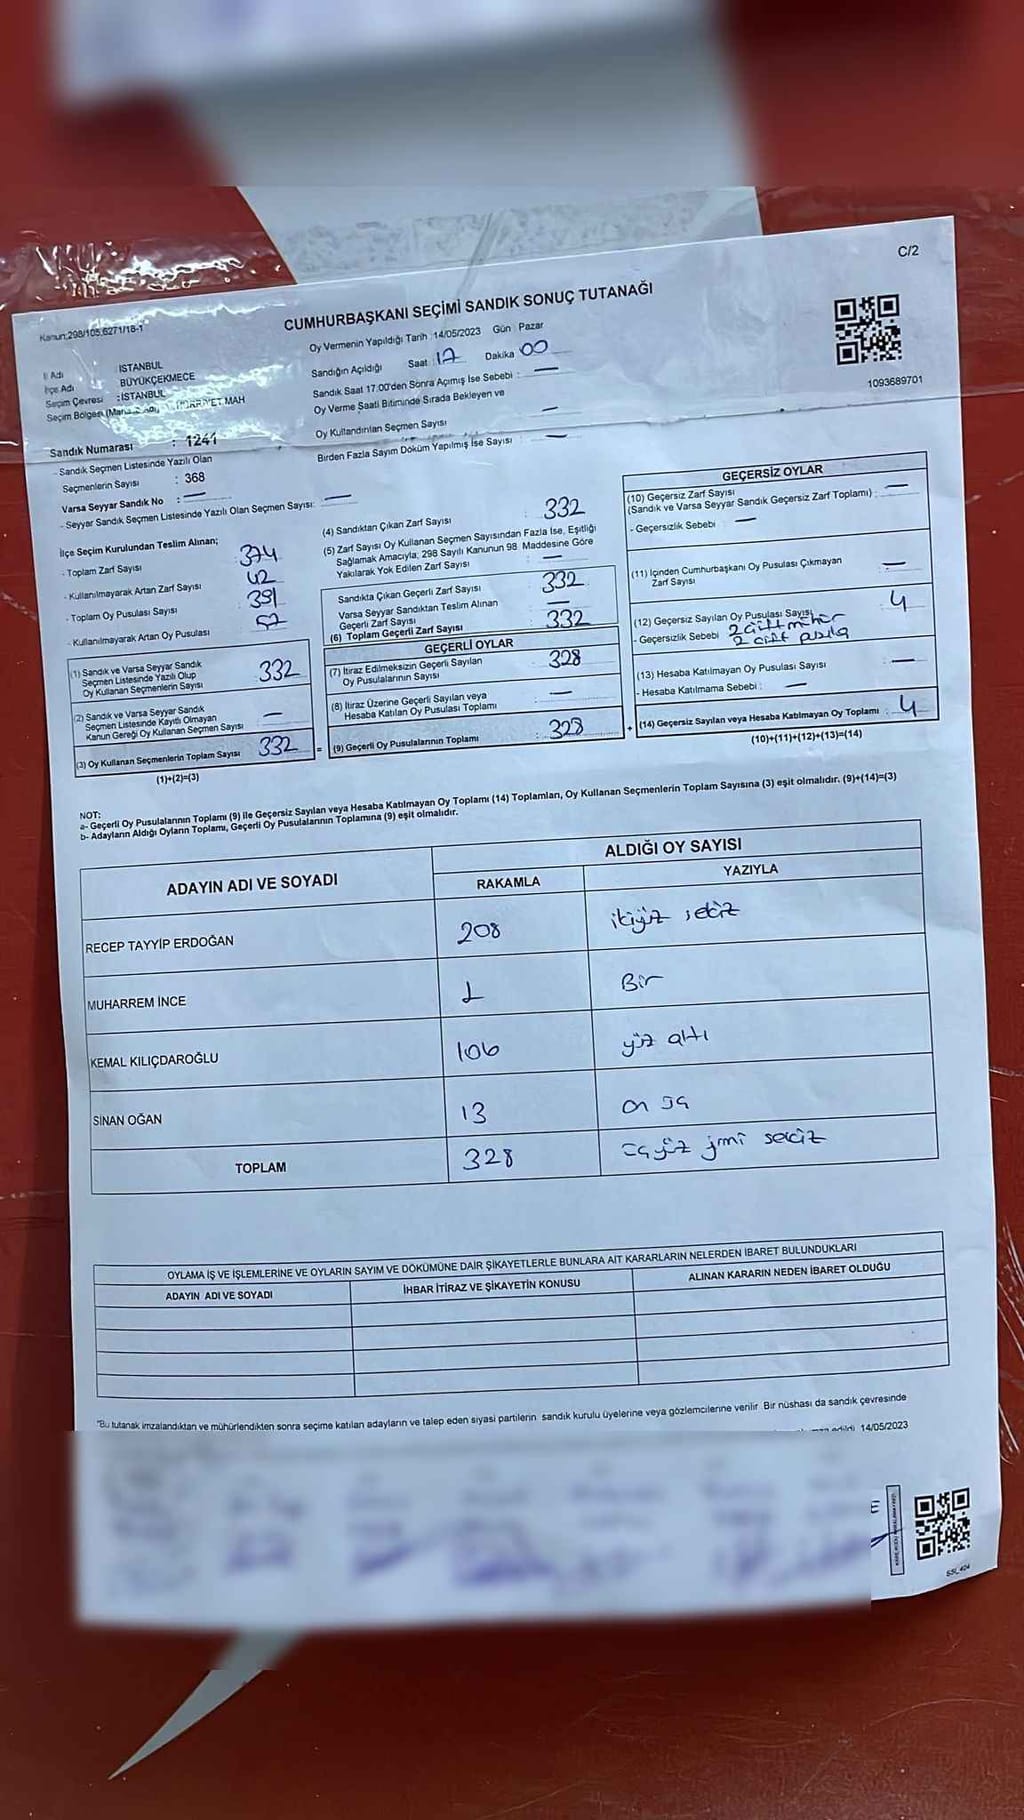 C/2
CUMHURBAŞKANI SEÇİMİ SANDIK SONUÇ TUTANAĞI
Kanun:298/105,6271/18-1
1093689701
İl Adı İSTANBUL
İlçe Adı BÜYÜKÇEKMECE
Seçim Çevresi : İSTANBUL
Seçim Bölgesi MAH
Sandık Numarası : 1241
- Sandık Seçmen Listesinde Yazılı Olan
Seçmenlerin Sayısı : 368
Varsa Seyyar Sandık No : —
- Seyyar Sandık Seçmen Listesinde Yazılı Olan Seçmen Sayısı: —
Oy Vermenin Yapıldığı Tarih :14/05/2023 Gün : Pazar
Sandığın Açıldığı Saat : 17 Dakika 00
Sandık Saat 17.00'den Sonra Açımış İse Sebebi : —
Oy Verme Saati Bitiminde Sırada Bekleyen ve
Oy Kullandırılan Seçmen Sayısı —
Birden Fazla Sayım Döküm Yapılmış İse Sayısı : —
İlçe Seçim Kurulundan Teslim Alınan;
- Toplam Zarf Sayısı 374
- Kullanılmayarak Artan Zarf Sayısı 42
- Toplam Oy Pusulası Sayısı 391
- Kullanılmayarak Artan Oy Pusulası
(1) Sandık ve Varsa Seyyar Sandık
Seçmen Listesinde Yazılı Olup
Oy Kullanan Seçmenlerin Sayısı 332
(2) Sandık ve Varsa Seyyar Sandık
Seçmen Listesinde Kayıtlı Olmayan
Kanun Gereği Oy Kullanan Seçmen Sayısı —
(3) Oy Kullanan Seçmenlerin Toplam Sayısı 332
(1)+(2)=(3)
(4) Sandıktan Çıkan Zarf Sayısı : 332
(5) Zarf Sayısı Oy Kullanan Seçmen Sayısından Fazla İse, Eşitliği
Sağlamak Amacıyla; 298 Sayılı Kanunun 98. Maddesine Göre
Yakılarak Yok Edilen Zarf Sayısı : —
Sandıkta Çıkan Geçerli Zarf Sayısı 332
Varsa Seyyar Sandıktan Teslim Alınan
Geçerli Zarf Sayısı —
(6) Toplam Geçerli Zarf Sayısı 332
GEÇERLİ OYLAR
(7) İtiraz Edilmeksizin Geçerli Sayılan
Oy Pusulalarının Sayısı 328
(8) İtiraz Üzerine Geçerli Sayılan veya
Hesaba Katılan Oy Pusulası Toplamı : —
= (9) Geçerli Oy Pusulalarının Toplamı : 328 +
GEÇERSİZ OYLAR
(10) Geçersiz Zarf Sayısı
(Sandık ve Varsa Seyyar Sandık Geçersiz Zarf Toplamı) : —
- Geçersizlik Sebebi : —
(11) İçinden Cumhurbaşkanı Oy Pusulası Çıkmayan
Zarf Sayısı —
(12) Geçersiz Sayılan Oy Pusulası Sayısı 4
- Geçersizlik Sebebi 2 çift mühür
2 çift pusula
(13) Hesaba Katılmayan Oy Pusulası Sayısı : —
- Hesaba Katılmama Sebebi : —
(14) Geçersiz Sayılan veya Hesaba Katılmayan Oy Toplamı : 4
(10)+(11)+(12)+(13)=(14)
NOT:
a- Geçerli Oy Pusulalarının Toplamı (9) ile Geçersiz Sayılan veya Hesaba Katılmayan Oy Toplamı (14) Toplamları, Oy Kullanan Seçmenlerin Toplam Sayısına (3) eşit olmalıdır. (9)+(14)=(3)
b- Adayların Aldığı Oyların Toplamı, Geçerli Oy Pusulalarının Toplamına (9) eşit olmalıdır.
ADAYIN ADI VE SOYADI ALDIĞI OY SAYISI
RAKAMLA YAZIYLA
RECEP TAYYİP ERDOĞAN 208 ikiyüz sekiz
MUHARREM İNCE 1 Bir
KEMAL KILIÇDAROĞLU 106 yüz altı
SİNAN OĞAN 13 on üç
TOPLAM 328 üçyüz yirmi sekiz
OYLAMA İŞ VE İŞLEMLERİNE VE OYLARIN SAYIM VE DÖKÜMÜNE DAİR ŞİKAYETLERLE BUNLARA AİT KARARLARIN NELERDEN İBARET BULUNDUKLARI
ADAYIN ADI VE SOYADI İHBAR İTİRAZ VE ŞİKAYETİN KONUSU ALINAN KARARIN NEDEN İBARET OLDUĞU
"Bu tutanak imzalandıktan ve mühürlendikten sonra seçime katılan adayların ve talep eden siyasi partilerin sandık kurulu üyelerine veya gözlemcilerine verilir. Bir nüshası da sandık çevresinde
14/05/2023
E
SSL 404